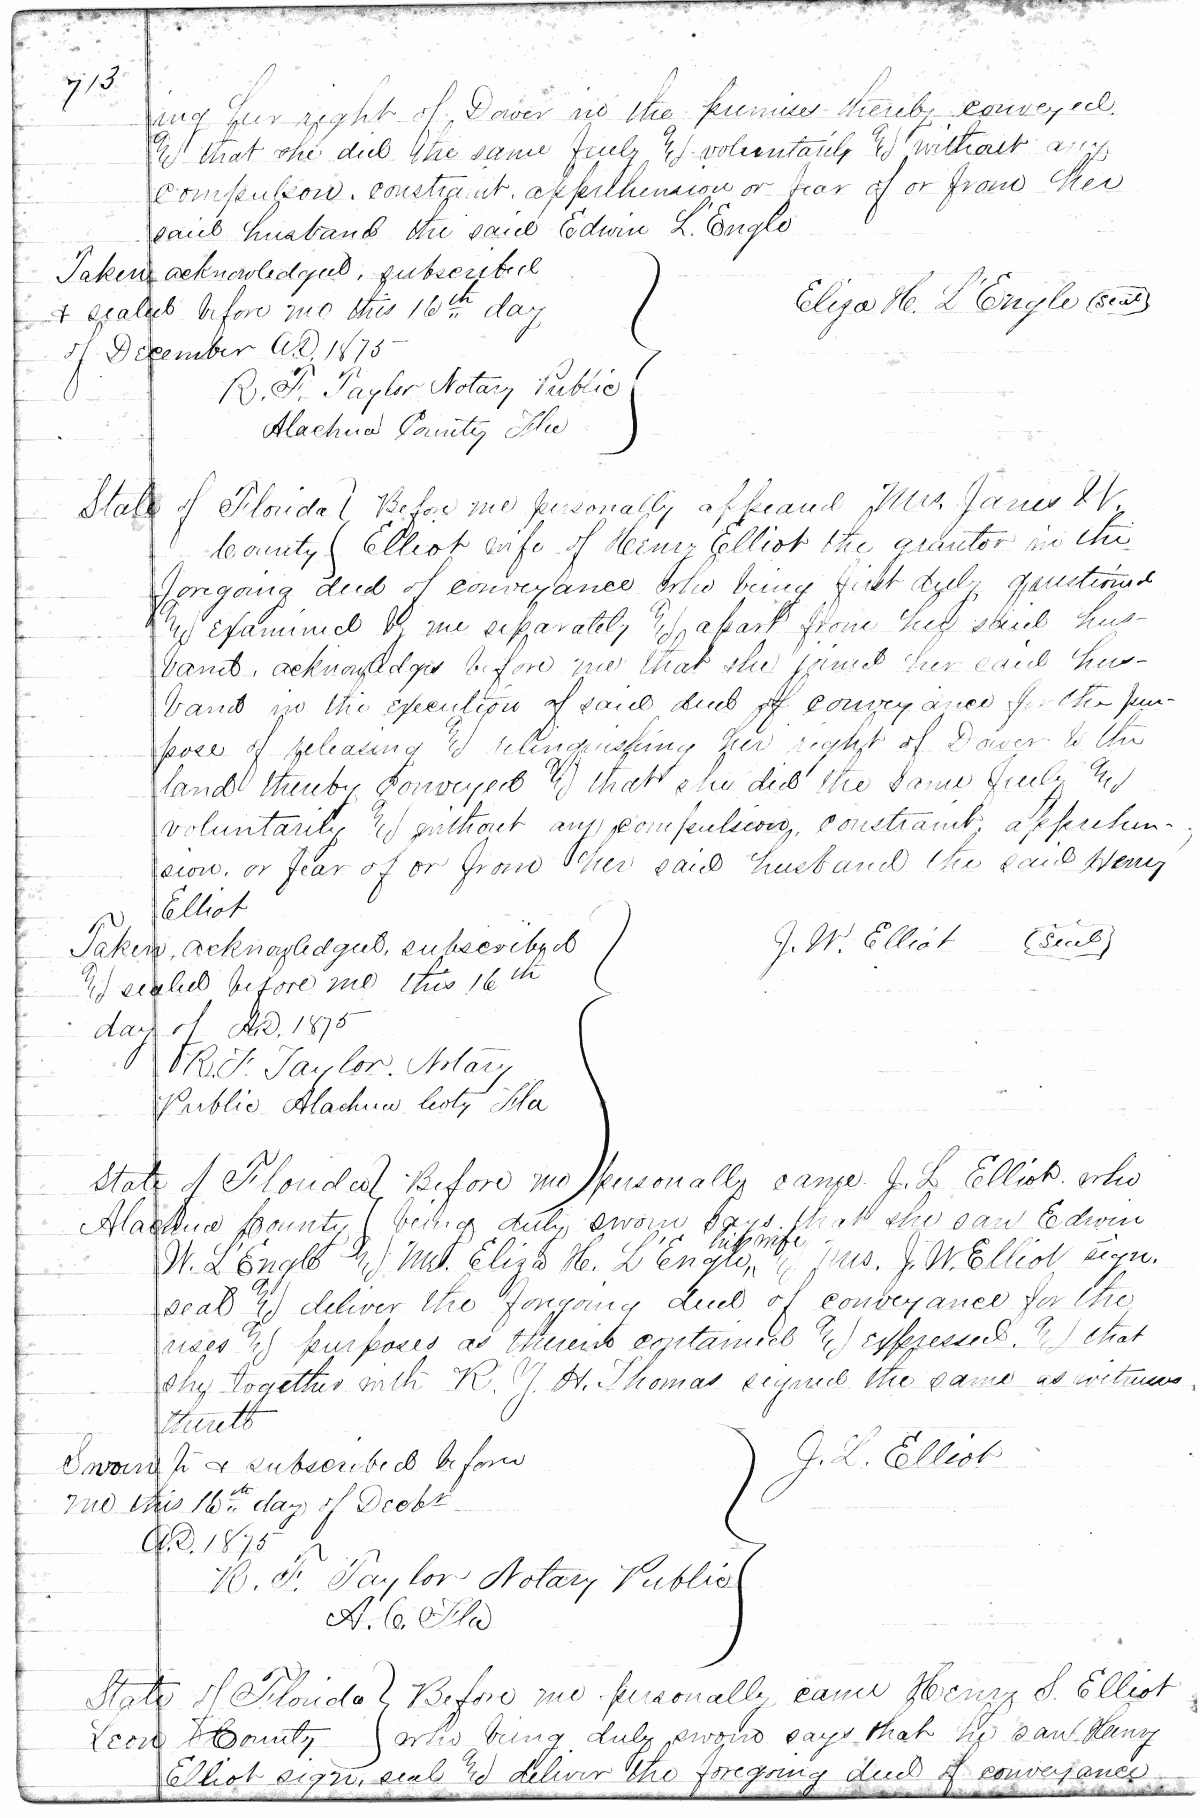 713
ing her right of Dower in the premises thereby conveyed.
& that she did the same freely & voluntarily & without any
compulson, constraint, apprehension or fear of or from her
said husband the said Edwin L'Engle
Taken acknowledged, subscribed
& sealed before me this 16th day
of December A.D. 1875
R. F. Taylor Notary Public
Alachua County Fla
Eliza H. L'Engle (Seal)
State of Florida } Before me personally appeared Mrs. Janes W.
County { Elliot wife of Henry Elliot the grantor in the
foregoing deed of conveyance who being first duly questioned
& examined by me separately & apart from her said hus-
band, acknowledges before me that she joined her said hus-
band in the execution of said deed of conveyance for the pur-
pose of releasing & relinquishing her right of Dower to the
land thereby conveyed & that she did the same freely &
voluntarily & without any compulsion, constraint, apprehen-
sion, or fear of or from her said husband the said Henry
Elliot
Taken, acknowledged, subscribed
& sealed before me this 16th
day of A.D. 1875
R. F. Taylor. Notary
Public Alachua Coty Fla
J. W. Elliot (Seal)
State of Florida } Before me personally came J. L Elliot who
Alachua County { being duly sworn says that she saw Edwin
W. L'Engle & Mrs. Eliza H. L'Engle, his wife & Mrs. J. W. Elliot sign.
seal & deliver the forgoing deed of conveyance for the
uses & purposes as therein contained & expressed. & that
she together with R. Y. H. Thomas signed the same as witness
thereto
Sworn to & subscribed before
me this 16th day of Decbr
A.D. 1875
R. F. Taylor Notary Public
A. C. Fla
J. L. Elliot
State of Florida } Before me personally came Henry S. Elliot
Leon County } who being duly sworn says that he saw Henry
Elliot sign, seal & deliver the foregoing deed of conveyance